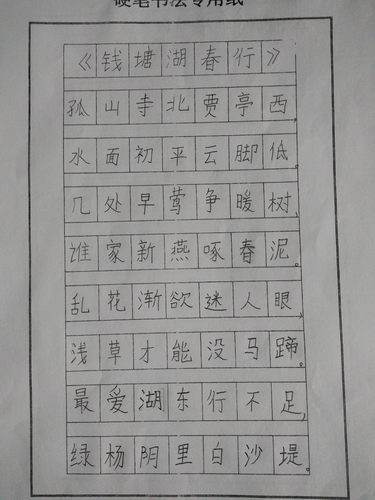 硬笔书法专用纸
《钱塘湖春行》
孤山寺北贾亭西。
水面初平云脚低。
几处早莺争暖树,
谁家新燕啄春泥。
乱花渐欲迷人眼,
浅草才能没马蹄。
最爱湖东行不足,
绿杨阴里白沙堤。